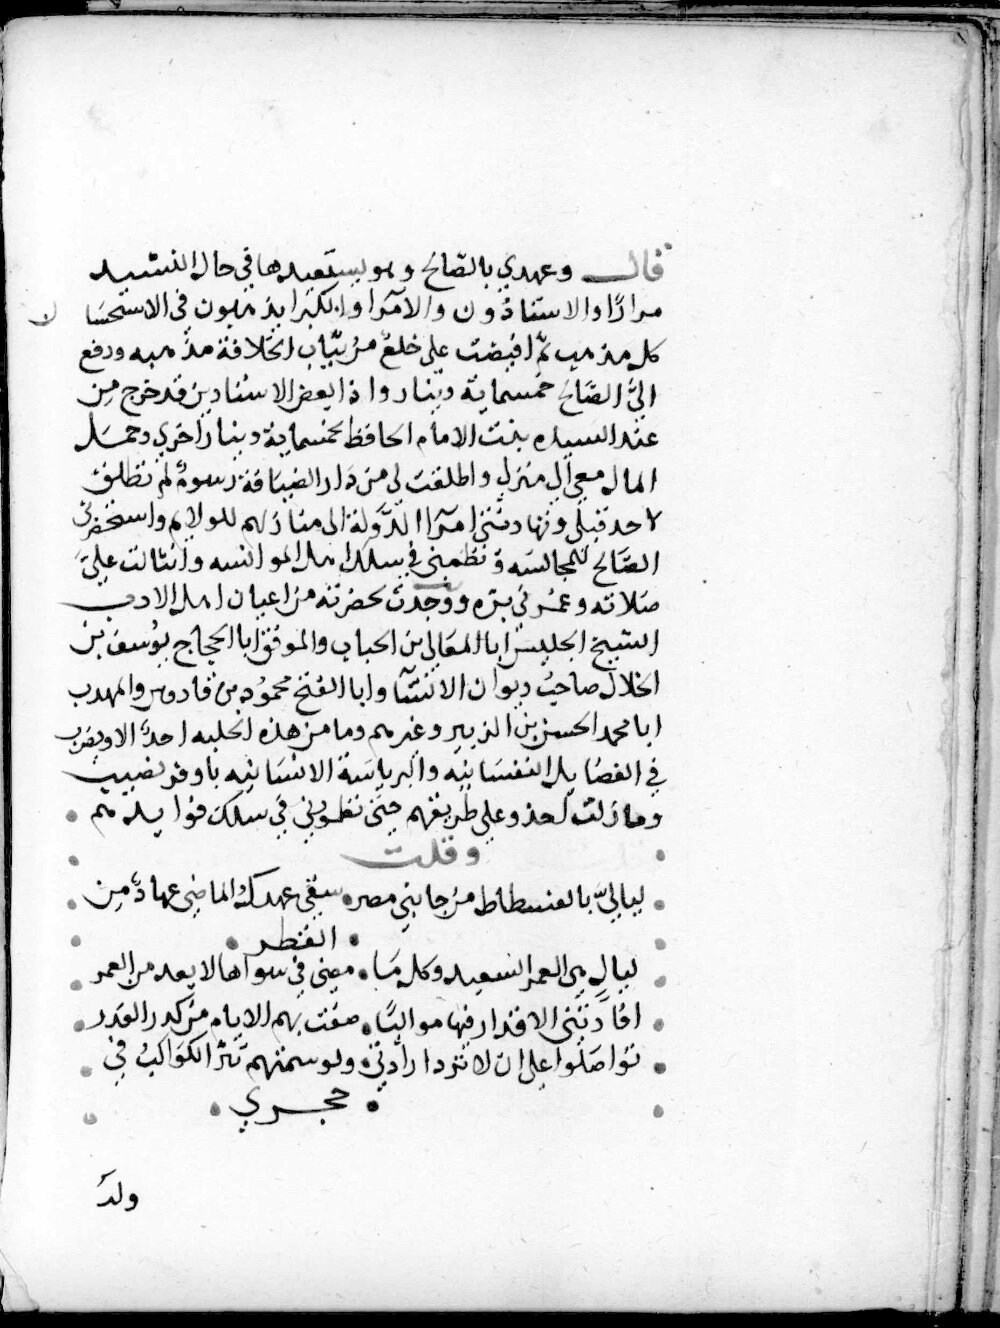 قال وعهدي بالصّالح وهو يستعيدها في حال النشيد
مرارًا والاستاذون والامرآ والكبرا يذهبون في الاستحسا ن
كل مذهب ثمّ افيضت علي خلعٌ من ثياب الخلافة مذهبه ودفع
اليَّ الصّالح خمسماية دينار واذا بعض الاستادين قد خرج من
عند السيده بنت الامام الحافظ بخمسماية دينار اخري وحمل
المال معي الي منزلي واطلقت لي من دار الضيافة رسومٌ لم تطلق
لاحد قبلي وتهادتني امرآ الدّولة الي منازلهم للولايم واستحضرني
الصّالح للمجالسه ونظمني في سلك اهل الموانسه وانثالت عليَّ
صلاته وغمرني برّه ووجدت بحضرته من اعيان اهل الادب
الشيخ الجليس ابا المعالي بن الحباب والموفق ابا الحجاج يوسف بن
الخلال صاحب ديوان الانشآ وابا الفتح محمود بن قادوس والمهدب
ابا محمد الحسن بن الزبير وغيرهم وما من هذه الحلبه احدٌ الا ويضرب
في الفضايل النفسانيه والرياسة الانسانيه باوفر نصيب
وما زلت احذو علي طريقهم حتي نظموني في سلك فوايدهم
وقلت
ليالي بالفسطاط من جانبي مصر سقي عهدك الماضي عهادٌ من
القطر
ليالٍ هي العمر السعيد وكل ما مضي في سواها لا يعد من العمر
افادتني الاقدار فيها مواليًا صفت بهم الايام من كدر الغدر
تواصلوا علي ان لا تزدا رادتي ولو سمتهم نثر الكواكب في
حجري
ولد